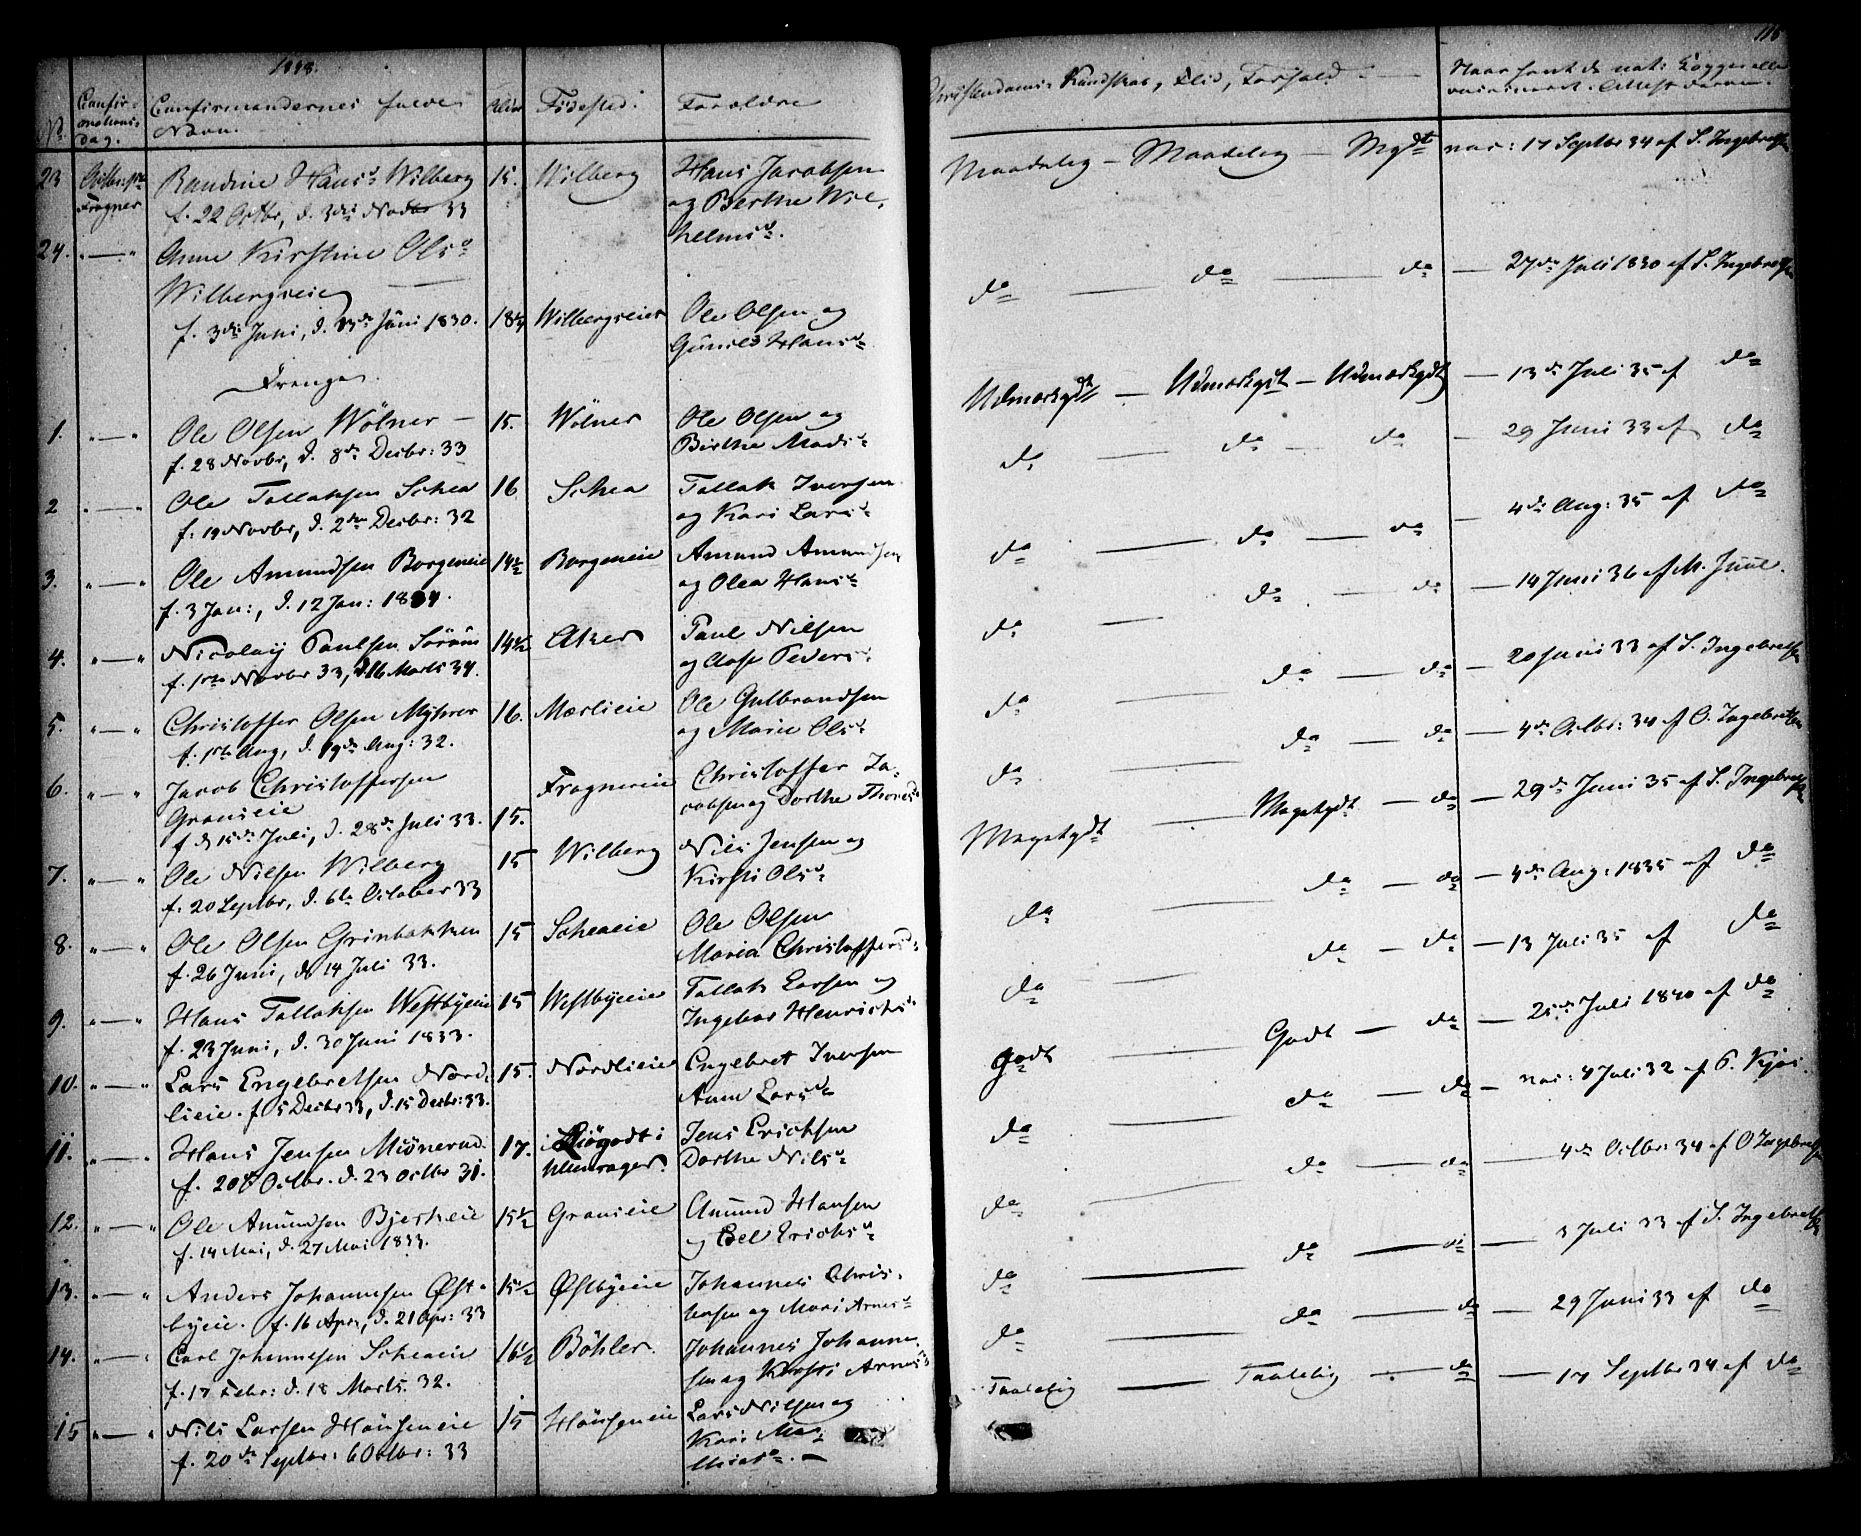 1848.
116
No
Confirmations Dag.
Confirmandernes fulde Navn.
Alder
Fødested.
Forældre
Christendoms Kundskab, Flid, Forhold
Naar havt de nat: Kopper eller vaccineret. Attest derom.
23 Octbr: 1ste Fragner Randine Hansd. Wilberg 15. Wilberg Hans Jacobsen Maadelig — Maadelig — Mgdt nai: 17 Septbr 34 af S. Ingebretsen
f. 22 Octbr, d. 3die Novbr 33 og Berthe Wil,
helmsd.
24. „—„ Anne Kirstine Olsd.
Wilbergseie
f. 3die Juni, d. 13de Juni 1830. 18¼ Wilbergseier Ole Olsen og do — do — do — 27de Juli 1830 af S. Ingebretsen
Gunild Hansd.
Drenge
1. „—„ Ole Olsen Wölner — 15. Wölner Ole Olsen og Udmærkgdt — Udmærkgdt — Udmærkgdt — 13de Juli 35 af do
f. 28 Novbr, d. 8de Decbr: 33 Birthe Madsd.
2 „—„ Ole Tollaksen Schea 16 Schea Tollak Iversen do — do — do — 29 Juni 33 af do
f. 19 Novbr, d. 2den Decbr: 32 og Kari Larsd.
3. „—„ Ole Amundsen Borgeneie 14½ Borgeneie Amund Amundsen do — do — do — 4de Aug: 35 af do
f. 3 Jan:, d. 12 Jan: 1834. og Olea Hansd.
4. „—„ Nicolay Paulsen Sörum 14½ Aker Paul Nilsen do — do — do — 14 Juni 36 af M. Juul.
f. 1ste Novbr 33, d. 16 Marts 34. og Aase Pedersd.
5. „—„ Christoffer Olsen Myhrer 16. Mærlieie Ole Gulbrandsen do — do — do — 20 Juni 33 af S. Ingebretsen
f. 1ste Aug, d. 19de Aug: 32. og Marie Olsd.
6. „—„ Jacob Christoffersen Fragnereie Christoffer Ja, do — do — do — 4de Octbr: 34 af O. Ingebretsen
Graneie cobsen og Dorthe Thoresd.
f. d. 15de Juli, d. 28de Juli 33. 15.
7. „—„ Ole Nilsen Wilberg 15 Wilberg Nils Jensen og Megetgdt — Megetgdt — do — 29de Juni 35 af S. Ingebretsen
f. 20 Septbr, d. 6te October 33 Kirsti Olsd.
8. „—„ Ole Olsen Grinbakken 15 Scheaeie Ole Olsen do — do — do — 4de Aug: 1835 af do
f. 26 Juni, d. 14 Juli 33. Maria Christoffersd.
9. „—„ Hans Tollaksen Westbyeie 15 Westbyeie Tollak Larsen og do — do — do — 13 Juli 35 af do
f. 23 Juni, d. 30 Juni 1833. Ingebor Henrichsd.
10. „—„ Lars Engebretsen Nord, 15. Nordlieie Engebret Iversen godt — Godt — do — 25de Juli 1840 af do
lieie. f. 5 Decbr 33, d. 15 Decbr: 33. Anne Larsd.
11. „—„ Hans Jensen Miönerud 17. Jens Erichsen do — do — do — nai: 4 Juli 32 af P. Kjos.
f. 20de Octbr. d. 23 Octbr 31. Ullensager. Dorthe Nilsd.
12. „—„ Ole Amundsen Bjerkeie 15½ Graneie Amund Hansen do — do — do — 4de Octbr: 34 af O Ingebretsen
f. 14 Mai, d. 27 Mai 1833. og Edel Erichsd.
13. „—„ Anders Johannesen Øst, 15½ Østbyeie Johannes Chris, do — do — do — 3 Juli 33 af S. Ingebretsen
byeie. f. 16 Apr, d. 21 Apr: 33 tensen og Mari Arnesd.
14. „—„ Carl Johannesen Scheaeie 16½ Böhler. Johannes Johanne do — do — do — 29 Juni 33 af do
f. 17 Febr: d. 18 Marts. 32. sen og Kirsti Arnesd.
15 „—„ Nils Larsen Hönseneie 15 Hönseneie Lars Nilsen og Taalelig — Taalelig — do — 17 Septbr 34 af do
f. 20de Septbr: 6 Octbr: 33 Kari Ma,
thisd. —